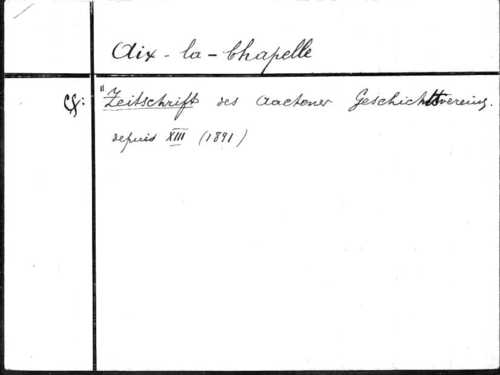 Aix-la-Chapelle
Cf: "Zeitschrift des Aachener Geschichtsvereins.
depuis XIII (1891)